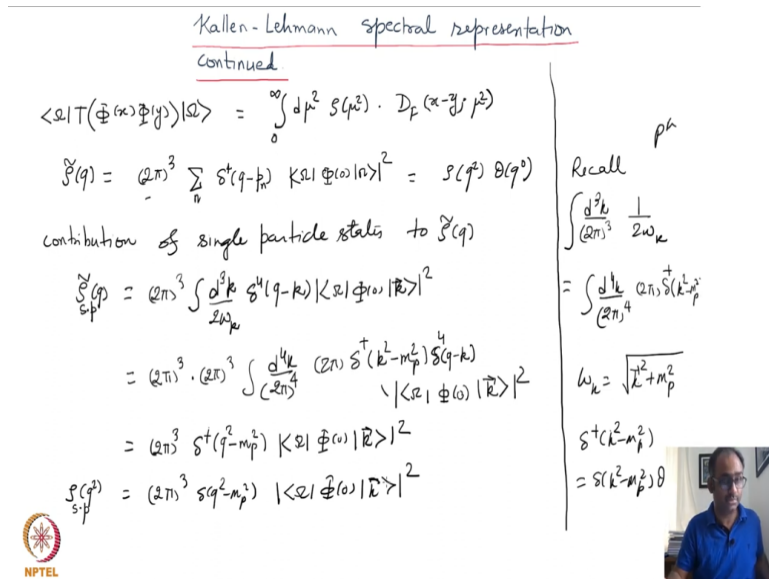 Kallen-Lehmann spectral representation
continued
<Ω|T(Φ(x)Φ(y))|Ω> = ∫₀^∞ dμ² ρ(μ²) · D_F(x-y; μ²)
ρ̃(q) = (2π)³ Σ_n δ⁴(q-p_n) |<Ω|Φ(0)|n>|² = ρ(q²) θ(q⁰)
contribution of single particle states to ρ̃(q)
ρ̃_{s.p}(q) = (2π)³ ∫ d³k/2ω_k δ⁴(q-k) |<Ω|Φ(0)|k⃗>|²
= (2π)³ · (2π)³ ∫ d⁴k/(2π)⁴ (2π) δ⁺(k²-m_p²) δ⁴(q-k) |<Ω|Φ(0)|k⃗>|²
= (2π)³ δ⁺(q²-m_p²) |<Ω|Φ(0)|k⃗>|²
ρ_{s.p}(q²) = (2π)³ δ(q²-m_p²) |<Ω|Φ(0)|k⃗>|²
Recall
∫ d³k/(2π)³ 1/2ω_k
= ∫ d⁴k/(2π)⁴ (2π) δ⁺(k²-m_p²
ω_k = √(k⃗²+m_p²)
δ⁺(k²-m_p²)
= δ(k²-m_p²) θ
NPTEL